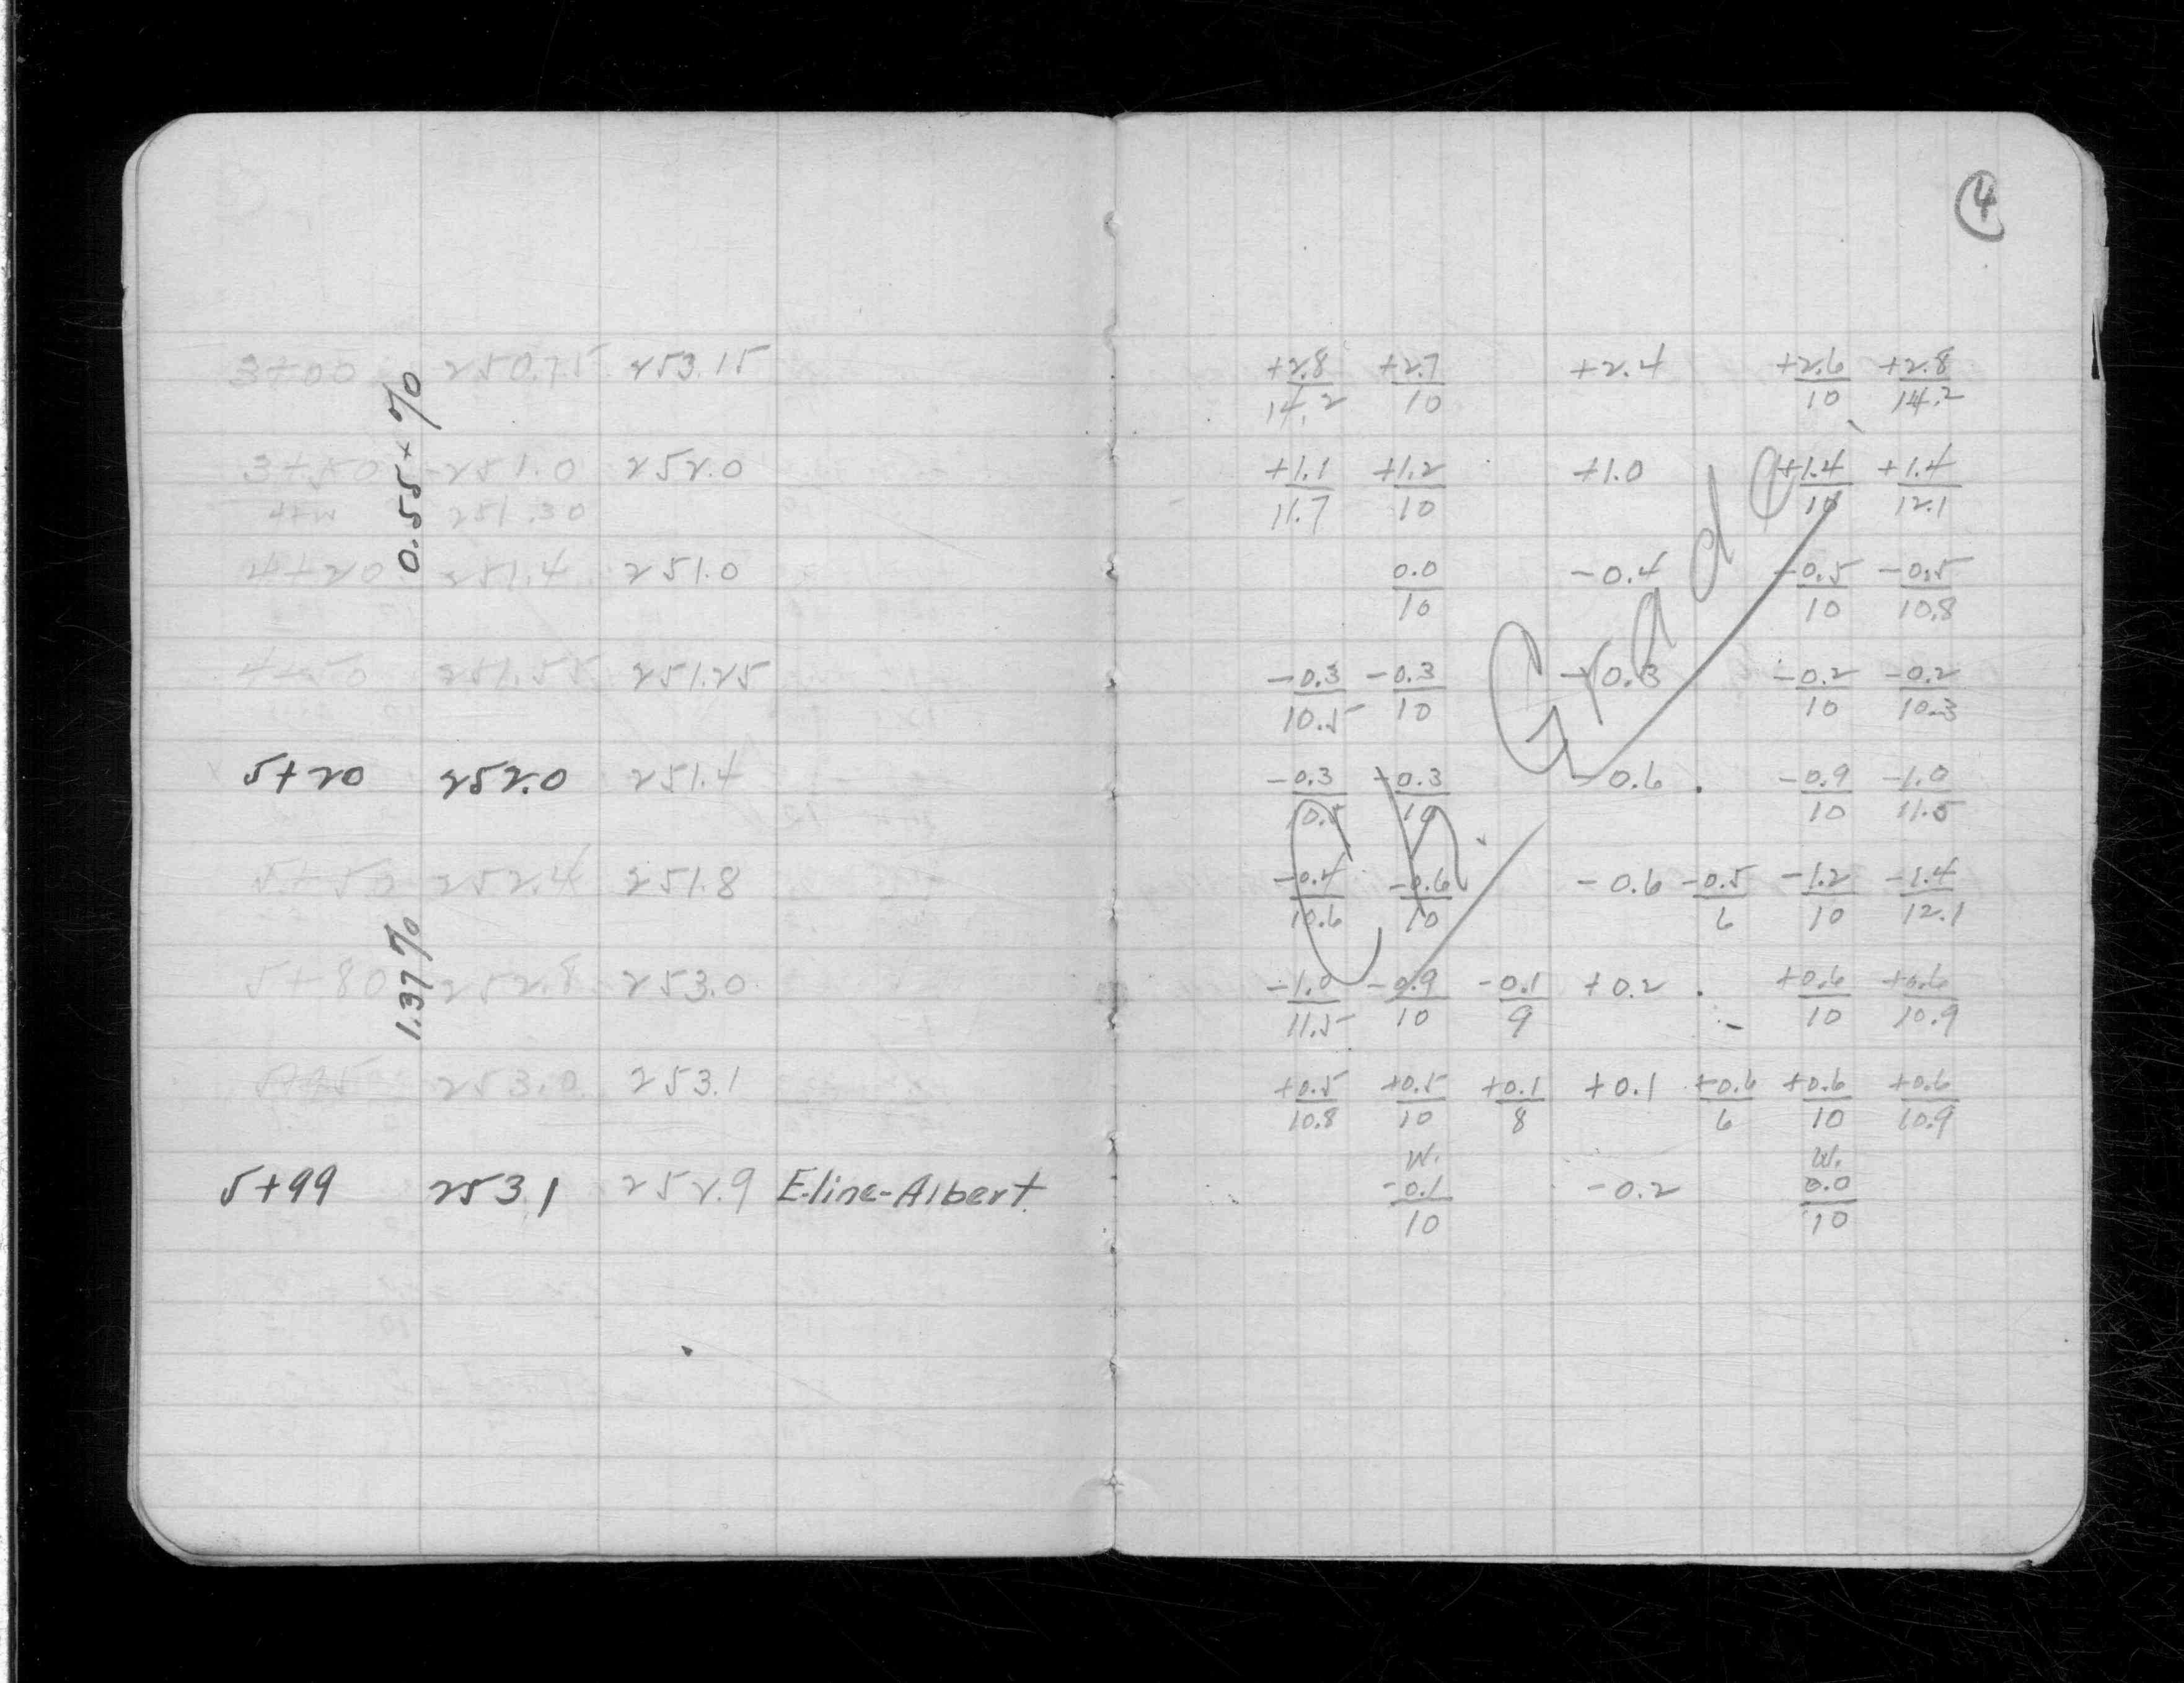 4
3+00 250.75 253.15 +2.8/14.2 +2.7/10 +2.4 +2.6/10 +2.8/14.2
0.55+%
3+50 251.0 252.0 +1.1/11.7 +1.2/10 +1.0 +1.4/10 +1.4/12.1
4+00 251.30
4+20 251.4 251.0 0.0/10 -0.4 -0.5/10 -0.5/10.8
4+50 251.55 251.25 -0.3/10.5 -0.3/10 -0.3 -0.2/10 -0.2/10.3
Ch Grade
5+20 252.0 251.4 -0.3/10.5 -0.3/10 -0.6 -0.9/10 -1.0/11.5
5+50 252.4 251.8 -0.4/10.6 -0.6/10 -0.6 -0.5/6 -1.2/10 -1.4/12.1
1.37%
5+80 252.8 253.0 -1.0/11.5 -0.9/10 -0.1/9 +0.2 +0.6/10 +0.6/10.9
5+95 253.0 253.1 +0.5/10.8 +0.5/10 +0.1/8 +0.1 +0.6/6 +0.6/10 +0.6/10.9
W. W.
5+99 253.1 252.9 E.line-Albert -0.1/10 -0.2 0.0/10